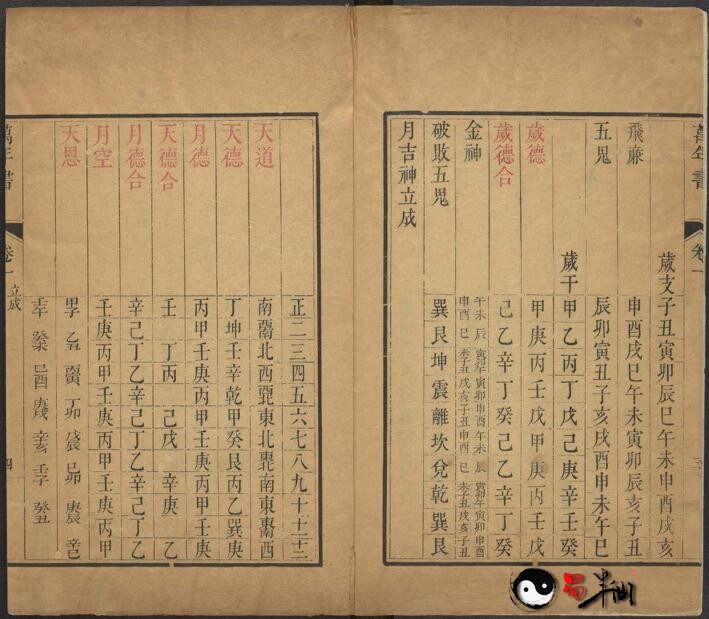 萬年書 卷一
歲支子丑寅卯辰巳午未申酉戌亥
飛廉 申酉戌巳午未寅卯辰亥子丑
五鬼 辰卯寅丑子亥戌酉申未午巳
歲干甲乙丙丁戊己庚辛壬癸
歲德 甲庚丙壬戊甲庚丙壬戊
歲德合 己乙辛丁癸己乙辛丁癸
金神
破敗五鬼 巽艮坤震離坎兌乾巽艮
月吉神立成
正二三四五六七八九十十一十二
天道 南西南北西西北東北東北南東東南西
天德 丁坤壬辛乾甲癸艮丙乙巽庚
月德 丙甲壬庚丙甲壬庚丙甲壬庚
天德合 壬 丁丙 己戊 辛庚 乙
月德合 辛己丁乙辛己丁乙辛己丁乙
月空 壬庚丙甲壬庚丙甲壬庚丙甲
天恩 甲子 乙丑 丙寅 丁卯 戊辰 己卯 庚辰 辛巳
壬午 癸未 己酉 庚戌 辛亥 壬子 癸丑
萬年書 卷一 立成 四
易半仙